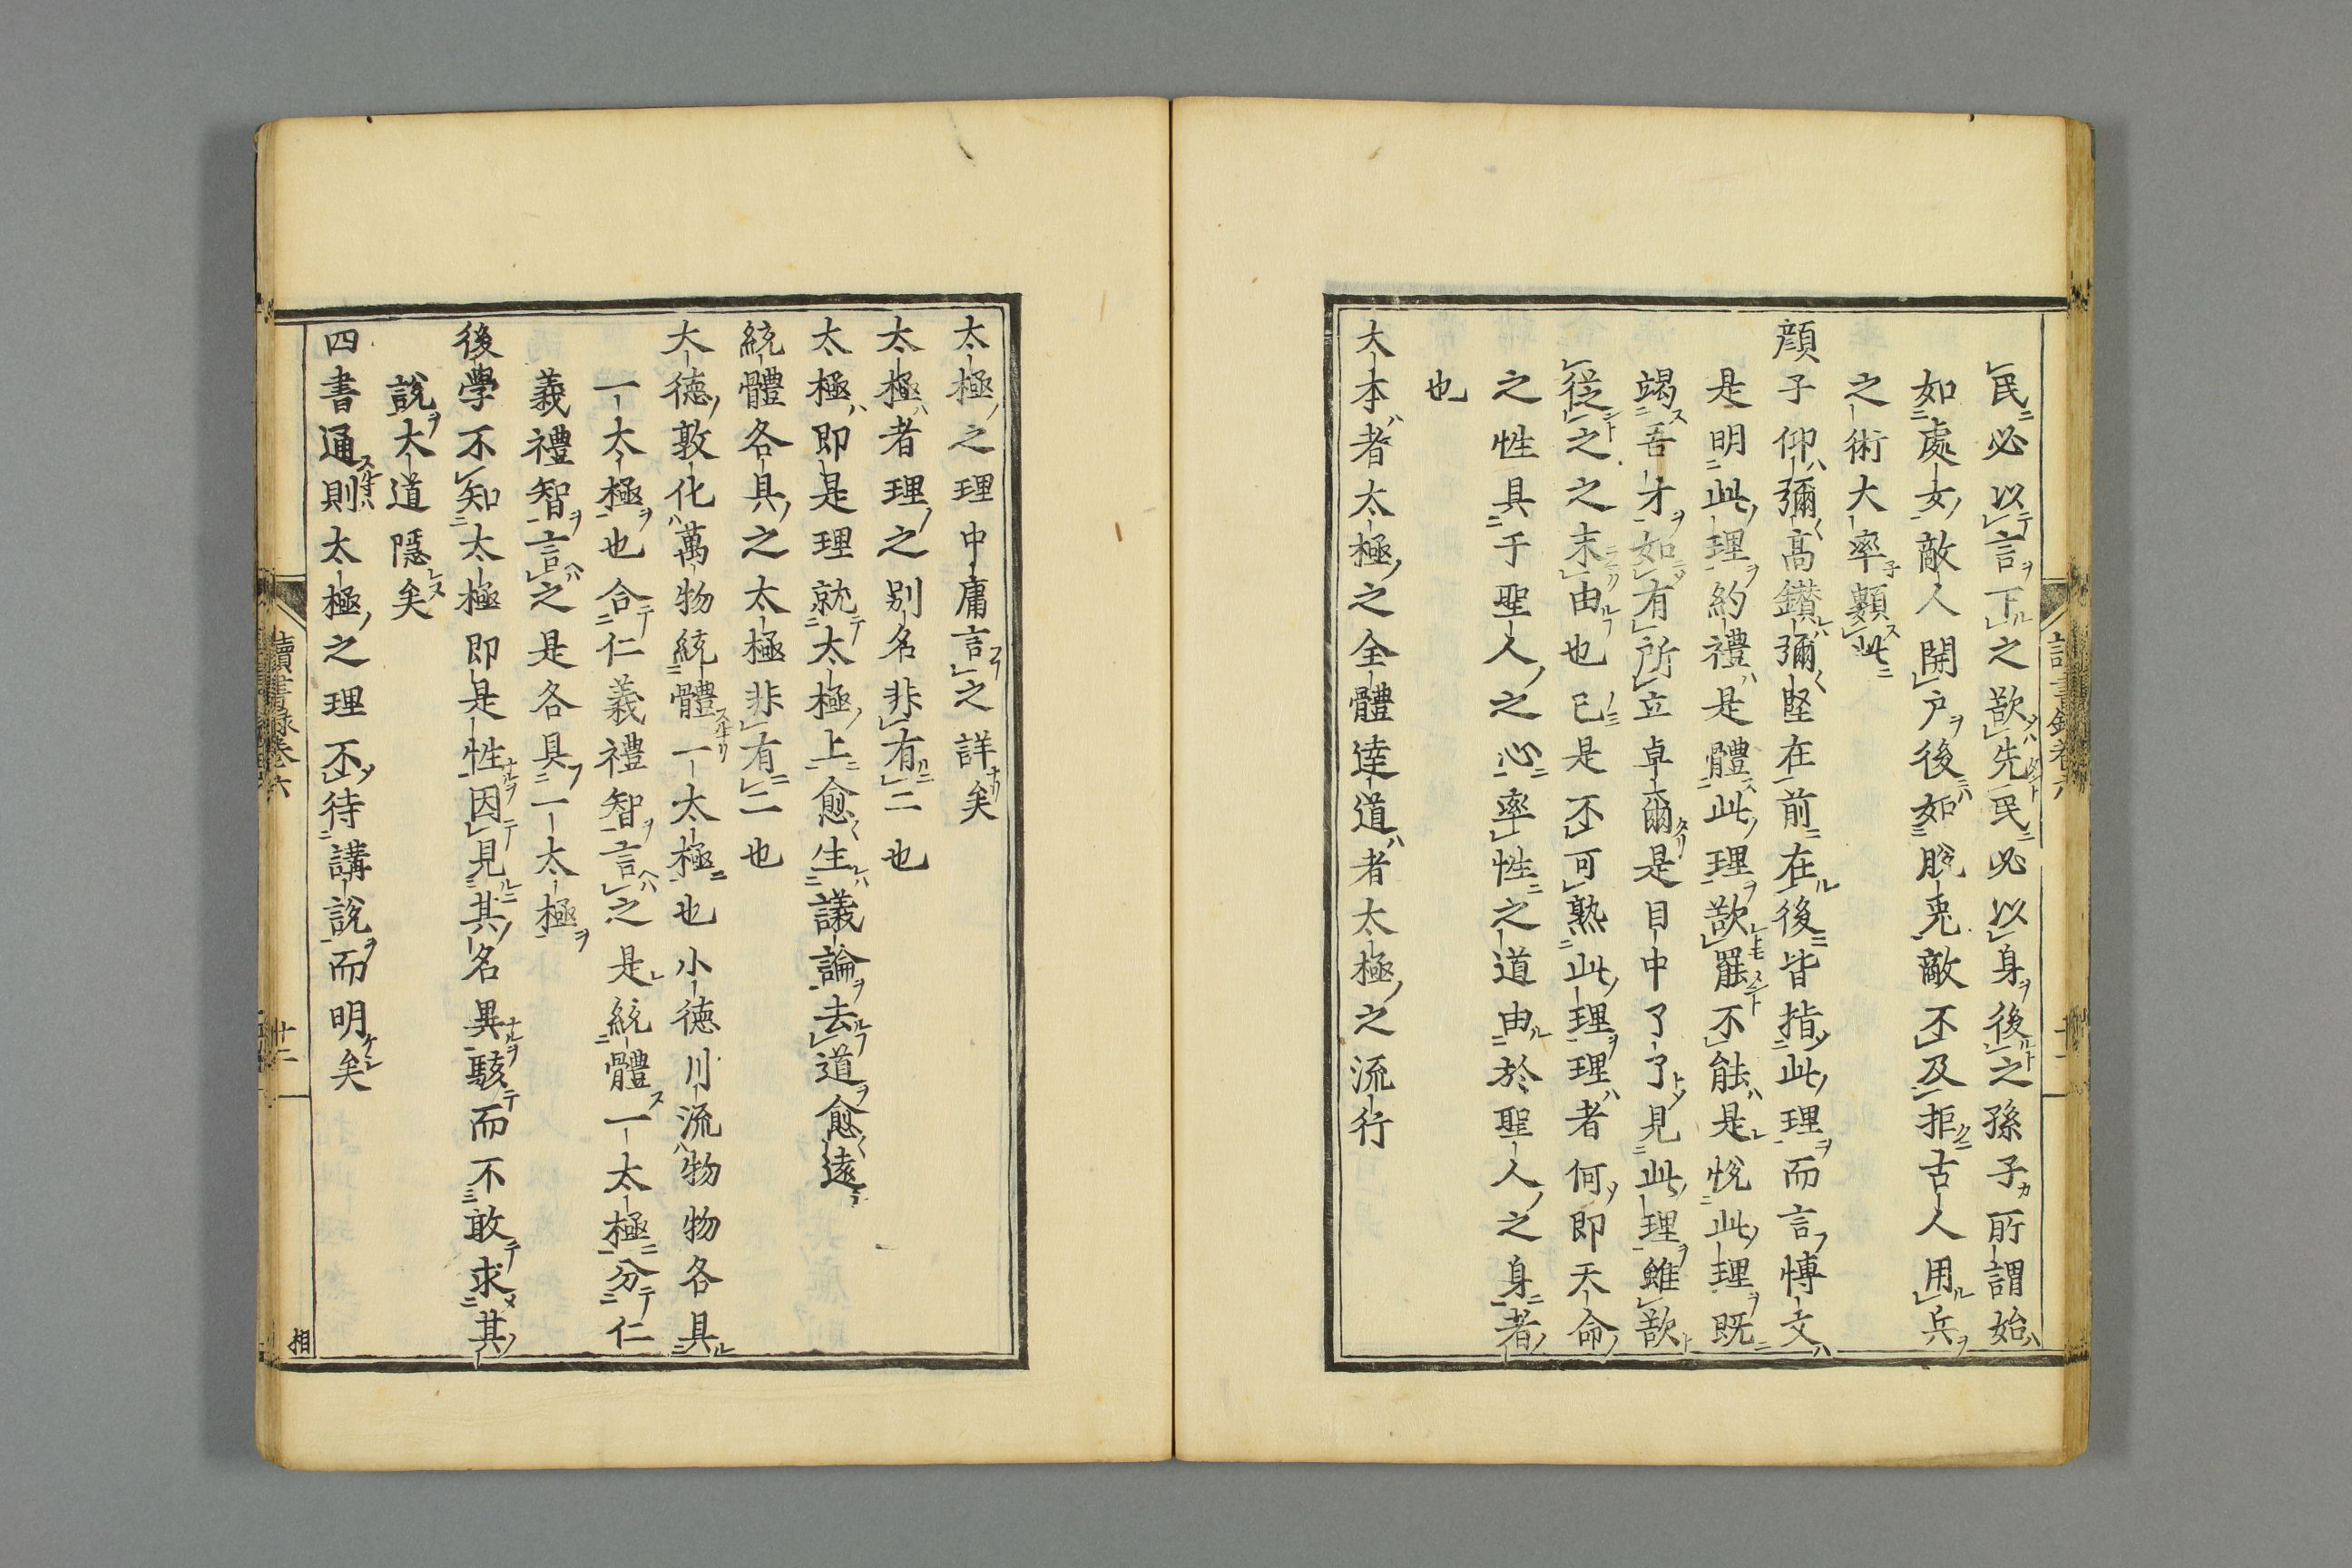 民必以言下之欲先民必以身後之孫子所謂始
如處女敵人開戸後如脫兎敵不及拒古人用兵
之術大率類此
顔子仰彌高鑚彌堅在前在後皆指此理而言愽文
是明此理約禮是體此理欲罷不能是恱此理既
竭吾才如有所立卓爾是目中了了見此理雖欲
從之末由也已是不可熟此理理者何即天命
之性具于聖人之心率性之道由於聖人之身者
也
大本者太極之全體達道者太極之流行
太極之理中庸言之詳矣
太極者理之别名非有二也
太極即是理就太極上愈生議論去道愈遠
統體各具之太極非有二也
大德敦化萬物統體一太極也小德川流物物各具
一太極也合仁義禮智言之是統體一太極分仁
義禮智言之是各具一太極
後學不知太極即是性因見其名異駭而不敢求其
說大道隱矣
四書通則太極之理不待講說而明矣
讀書録巻六
十二
相